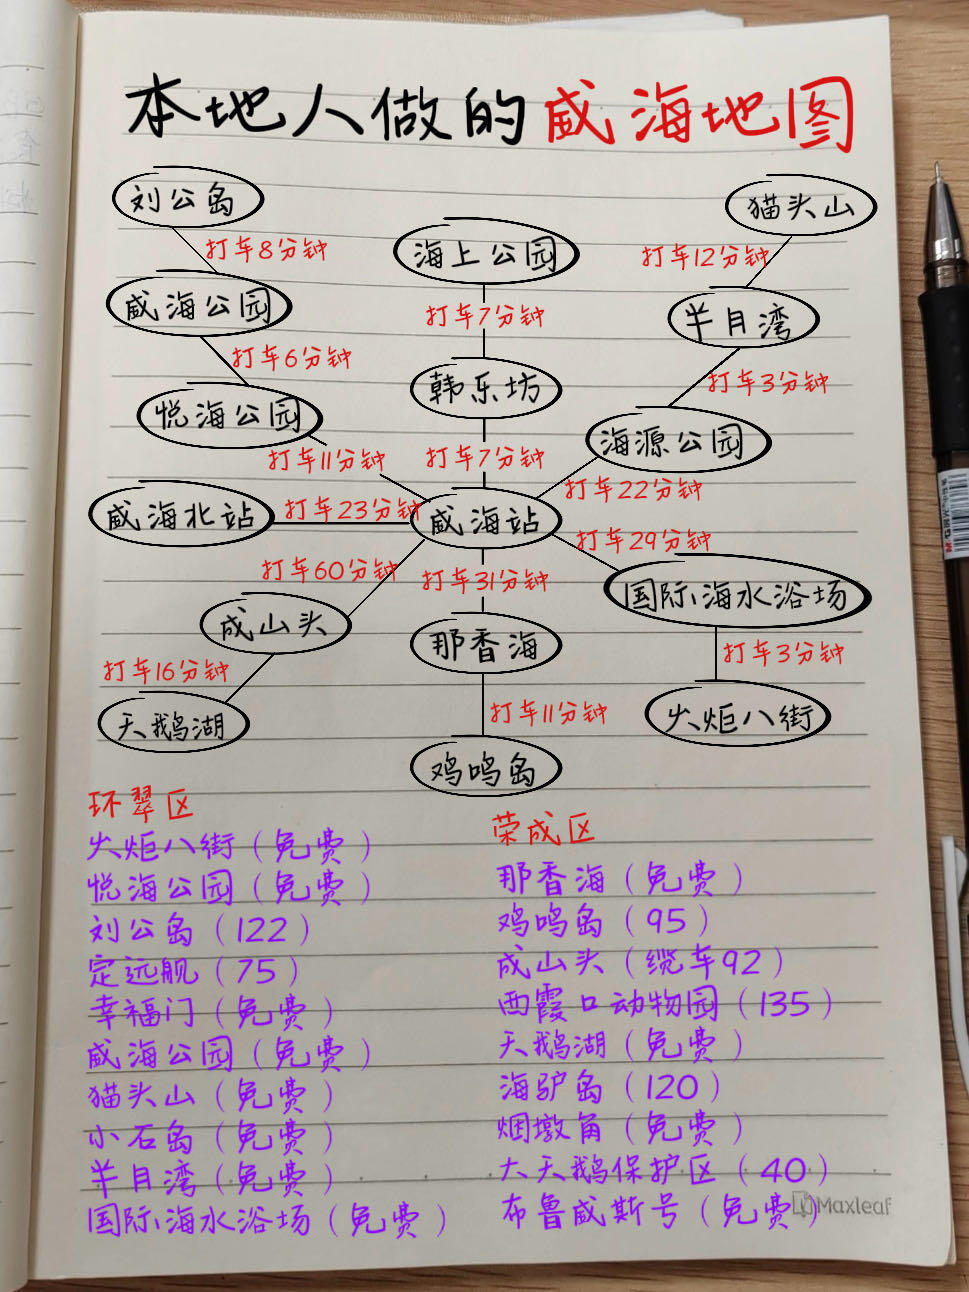 本地人做的威海地图
刘公岛
猫头山
打车8分钟
海上公园
打车12分钟
威海公园
打车7分钟
半月湾
打车6分钟
韩乐坊
打车3分钟
悦海公园
海源公园
打车11分钟
打车7分钟
打车22分钟
威海北站
打车23分钟
威海站
打车29分钟
打车60分钟
打车31分钟
国际海水浴场
成山头
那香海
打车3分钟
打车16分钟
天鹅湖
打车11分钟
火炬八街
鸡鸣岛
环翠区
火炬八街(免费)
悦海公园(免费)
刘公岛(122)
定远舰(75)
幸福门(免费)
威海公园(免费)
猫头山(免费)
小石岛(免费)
半月湾(免费)
国际海水浴场(免费)
荣成区
那香海(免费)
鸡鸣岛(95)
成山头(缆车92)
西霞口动物园(135)
天鹅湖(免费)
海驴岛(120)
烟墩角(免费)
大天鹅保护区(40)
布鲁威斯号(免费)
Maxleaf